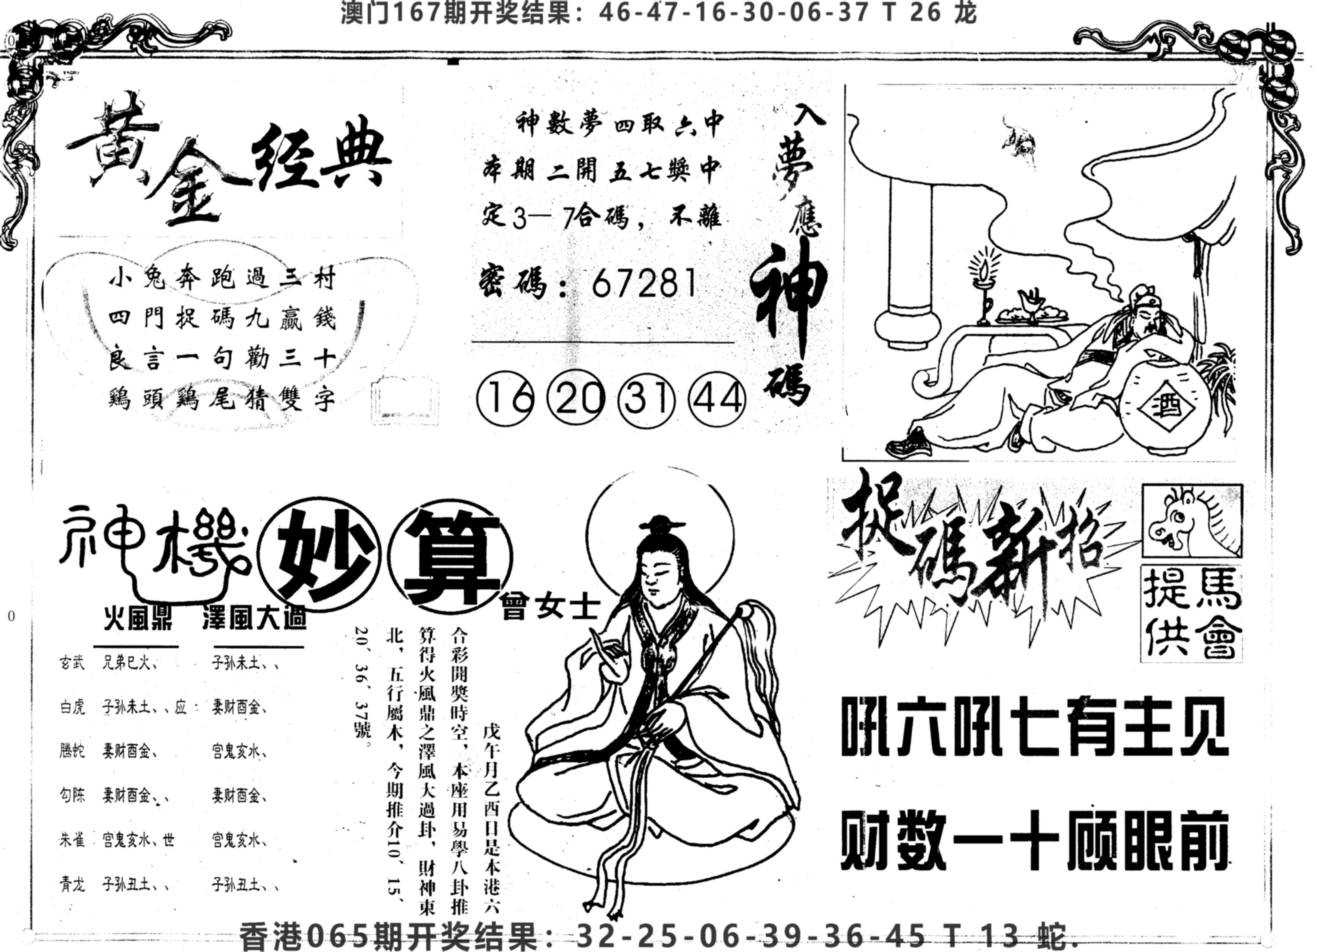 澳门167期开奖结果：46-47-16-30-06-37 T 26 龙
黄金经典
小兔奔跑過三村
四門捉碼九贏錢
良言一句勸三十
鷄頭鷄尾猜雙字
神數夢四取六中
本期二開五七獎中
定3一7合碼，不離
密碼：67281
16 20 31 44
入夢應神碼
酒
神機妙算
曾女士
火風鼎 澤風大過
玄武 兄弟巳火、 子孙未土、、
白虎 子孙未土、、应： 妻财酉金、
螣蛇 妻财酉金、 官鬼亥水、
勾陈 妻财酉金、、 妻财酉金、
朱雀 官鬼亥水、世 官鬼亥水、
青龙 子孙丑土、、 子孙丑土、、
戊午月乙酉日是本港六
合彩開獎時空，本座用易學八卦推
算得火風鼎之澤風大過卦，財神東
北，五行屬木，今期推介10、15、
20、36、37號。
捉碼新招
馬會提供
吼六吼七有主见
财数一十顾眼前
香港065期开奖结果：32-25-06-39-36-45 T 13 蛇.